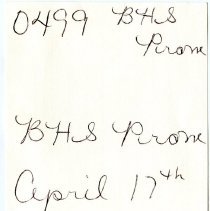 0499 BHS
Prom
BHS Prom
April 17th